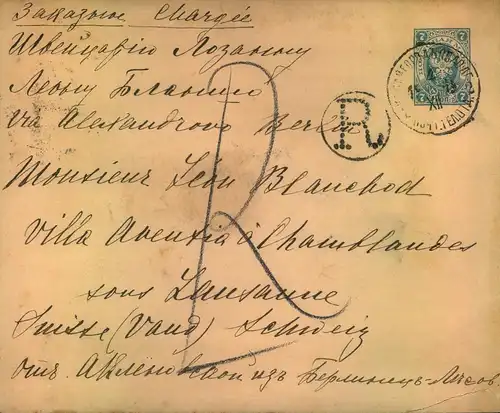 Заказное Chargée
Швейцарію Лозанну
Леону Бланшо
via Alexandrovo Berlin
R
Monsieur Léon Blanchod
Villa Aventia à Chamblandes
sous Lausanne
Suisse (Vaud) Schweiz
отъ изъ
7 7
R